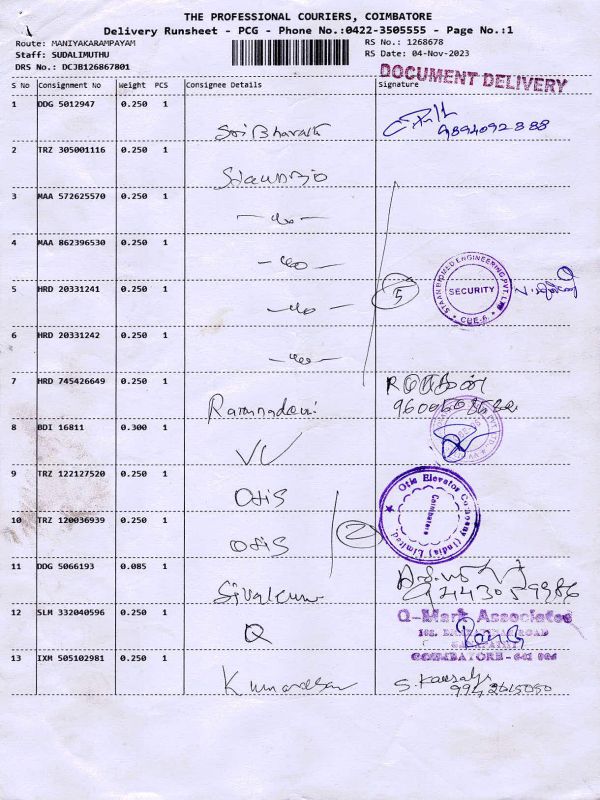 THE PROFESSIONAL COURIERS, COIMBATORE
Delivery Runsheet - PCG - Phone No.:0422-3505555 - Page No.:1
Route: MANIYAKARAMPAYAM RS No.: 1268678
Staff: SUDALIMUTHU RS Date: 04-Nov-2023
DRS No.: DCJB126867801
DOCUMENT DELIVERY
S No Consignment No Weight PCS Consignee Details Signature
1 DDG 5012947 0.250 1
Sri Bharath 9894092888
2 TRZ 305001116 0.250 1
3 MAA 572625570 0.250 1
4 MAA 862396530 0.250 1
5 HRD 20331241 0.250 1
5 STAAN BIOMED ENGINEERING PVT LTD SECURITY CBE-6
6 HRD 20331242 0.250 1
7 HRD 745426649 0.250 1
8 BDI 16811 0.300 1
VV
9 TRZ 122127520 0.250 1
Otis
2 Otis Elevator Company (India) Limited Coimbatore
10 TRZ 120036939 0.250 1
Otis
11 DDG 5066193 0.085 1
12 SLM 332040596 0.250 1
Q Q-Mark Associates
COIMBATORE
13 IXM 505102981 0.250 1
Kumaresan S. Kausalya